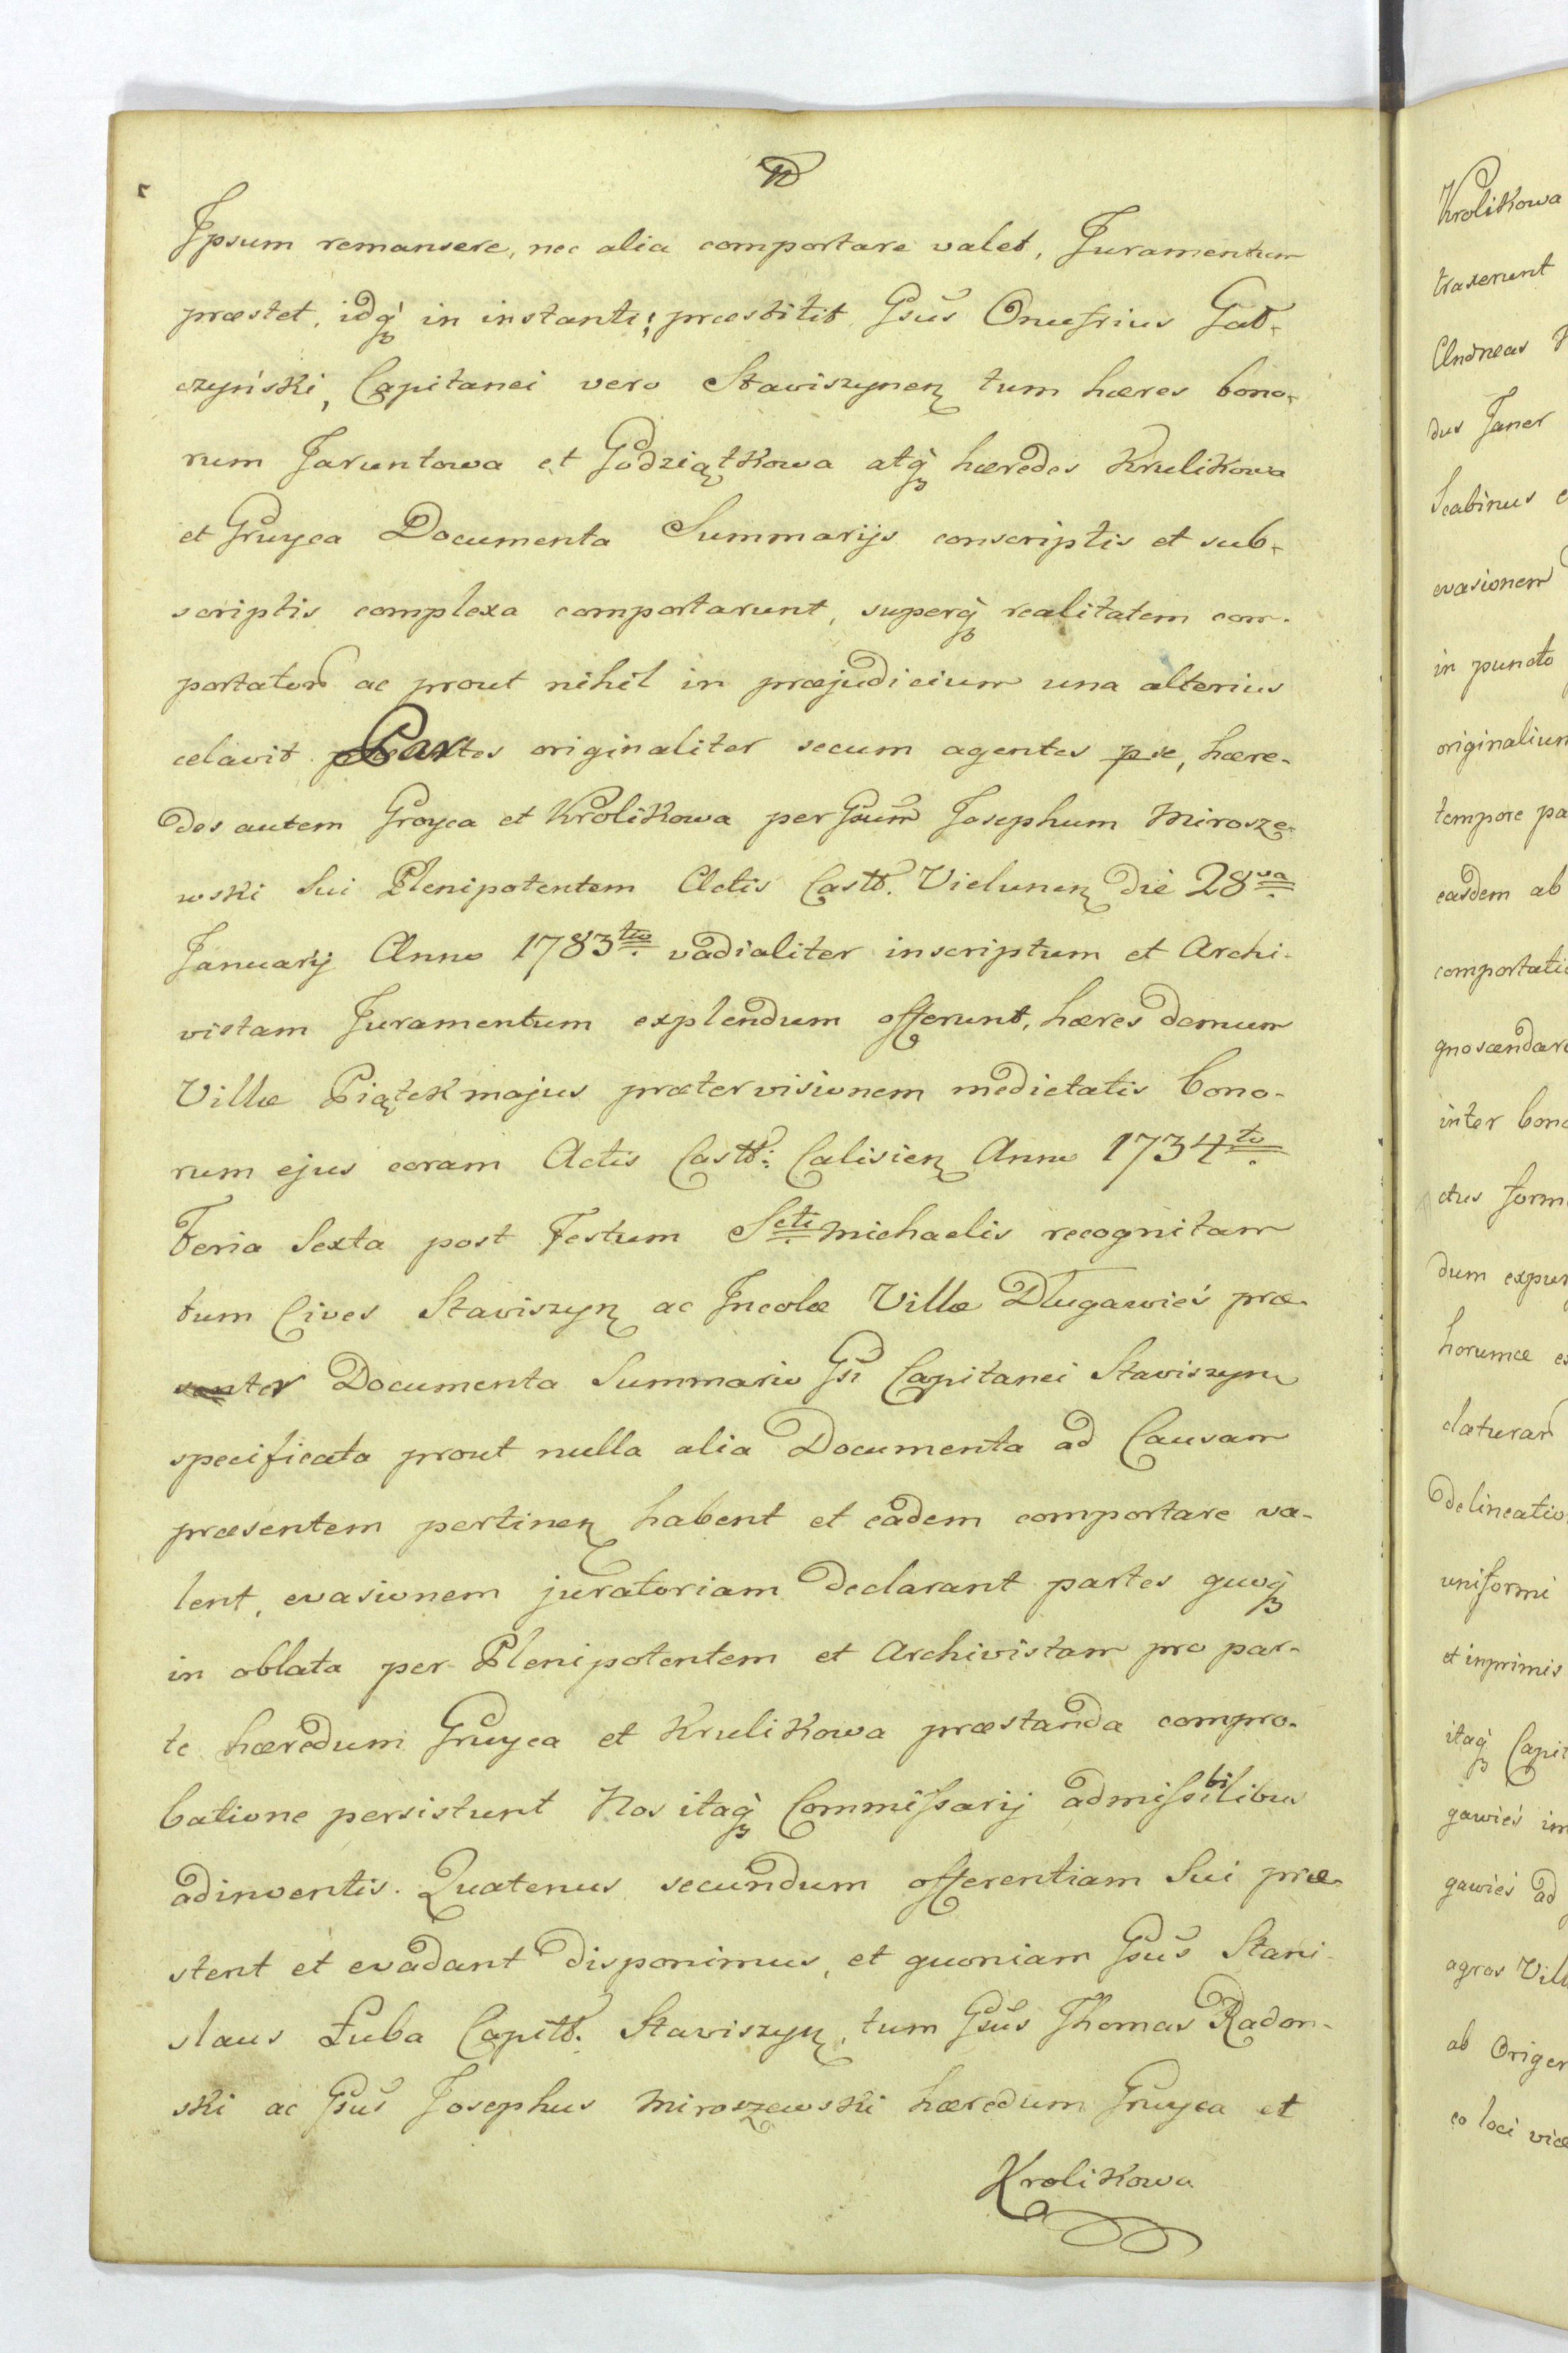 Ipsum remansere, nec alia comportare valet, Juramentum
præstet, idq̀ in instanti; præstitit Gsus Onufrius Gat-
czyński, Capitanei vero Stawiszynen tum hæres bono-
rum Jaruntowa et Godziątkowa atq̀ hæredes Krulikowa
et Gruyca Documenta Summarijs conscriptis et sub-
scriptis complexa comportarunt, superq̀ realitatem com-
portator ac prout nihil in præjudicium una alterius
celavit Partes originaliter secum agentes pse, hære-
des autem Groyca et Krolikowa per Gsum Josephum Mirosze-
wski Sui Plenipotentem Actis Castr. Vielunen die 28va
Januarij Anno 1783tio vadialiter inscriptum et Archi-
vistam Juramentum explendum offerunt, hæres demum
Villæ Piątek majus præter visionem medietatis bono-
rum ejus coram Actis Castr: Calisien Anno 1734to
Feria Sexta post Festum Scti Michaelis recognitam
tum Cives Stawiszyn ac Incolæ Villæ Długawieś præ-
ter Documenta Summario Gsi Capitanei Stawiszyn
specificata prout nulla alia Documenta ad Causam
præsentem pertinen habent et eadem comportare va-
lent, evasionem juratoriam declarant partes quoq̀
in oblata per Plenipotentem et Archivistam pro par-
te hæredum Gruyca et Krulikowa præstanda compro-
batione persistunt Nos itaq̀ Commissarij admissibilibus
adinventis. Quatenus secundum offerentiam Sui præ-
stent et evadant disponimus, et quoniam Gsus Stani-
slaus Łuba Capitt. Stawiszyn, tum Gsus Thomas Radon-
ski ac Gsus Josephus Miroszewski hæredum Gruyca et
Krolikowa
Krolikowa
traxerunt
Andreas
dus Janer
Scabinus
evasionem
in puncto
originalium
tempore pa
easdem ab
comportatio
gnoscendar
inter bono
ctus form
dum expur
horumce
claturam
Delineatio
uniformi
et inprimis
itaq̀ Capit
gawieś im
gawieś ad
agros Vill
ab Origen
eo loci vice